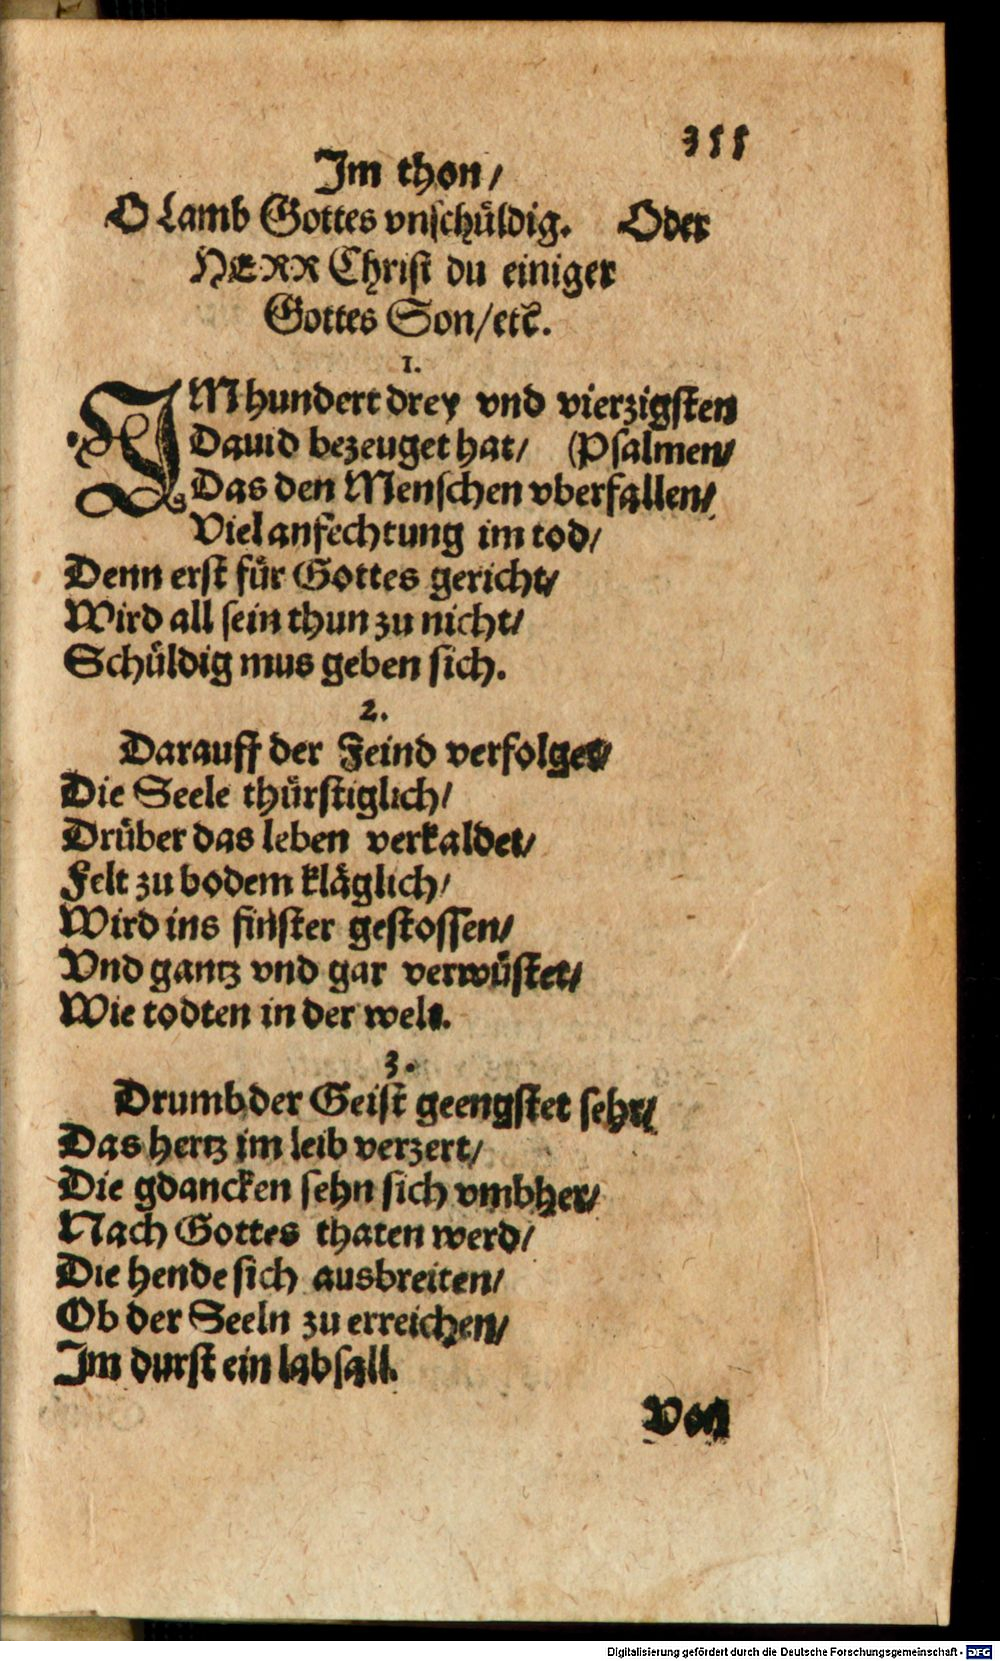 355
Im thon/
O Lamb Gottes vnschüldig. Oder
HERR Christ du einiger
Gottes Son/etc.
1.
IM hundert drey vnd vierzigsten
Dauid bezeuget hat/ (Psalmen/
Das den Menschen vberfallen/
Viel anfechtung im tod/
Denn erst für Gottes gericht/
Wird all sein thun zu nicht/
Schüldig mus geben sich.
2.
Darauff der Feind verfolget/
Die Seele thürstiglich/
Drüber das leben verkaldet/
Felt zu bodem kläglich/
Wird ins finster gestossen/
Vnd gantz vnd gar verwüstet/
Wie todten in der welt.
3.
Drumb der Geist geengstet sehr/
Das hertz im leib verzert/
Die gdancken sehn sich vmbher/
Nach Gottes thaten werd/
Die hende sich ausbreiten/
Ob der Seeln zu erreichen/
Im durst ein labsall.
Von
Digitalisierung gefördert durch die Deutsche Forschungsgemeinschaft - DFG